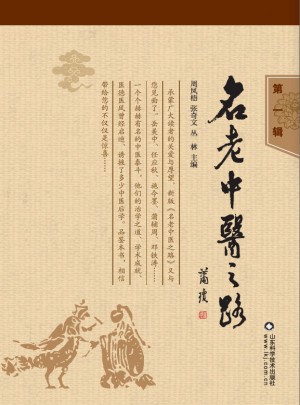 第一辑
名老中醫之路
萧璜
周凤梧 张奇文 丛 林 主编
承蒙广大读者的关爱与厚望，新版《名老中医之路》又与
您见面了。岳美中、任应秋、姚令墨、蒲辅周、邓铁涛……
一个个赫赫有名的中医泰斗，他们的治学之道、学术成就、
医德医风曾经启迪、请拨了多少中医后学。品鉴本书，相信
带给您的不仅仅是惊喜……
山东科学技术出版社
www.lkj.com.cn